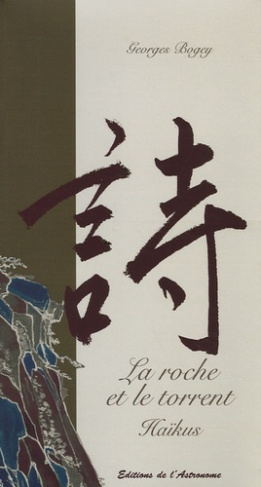 Georges Bogey
詩
La roche
et le torrent
Haïkus
Editions de l'Astronome